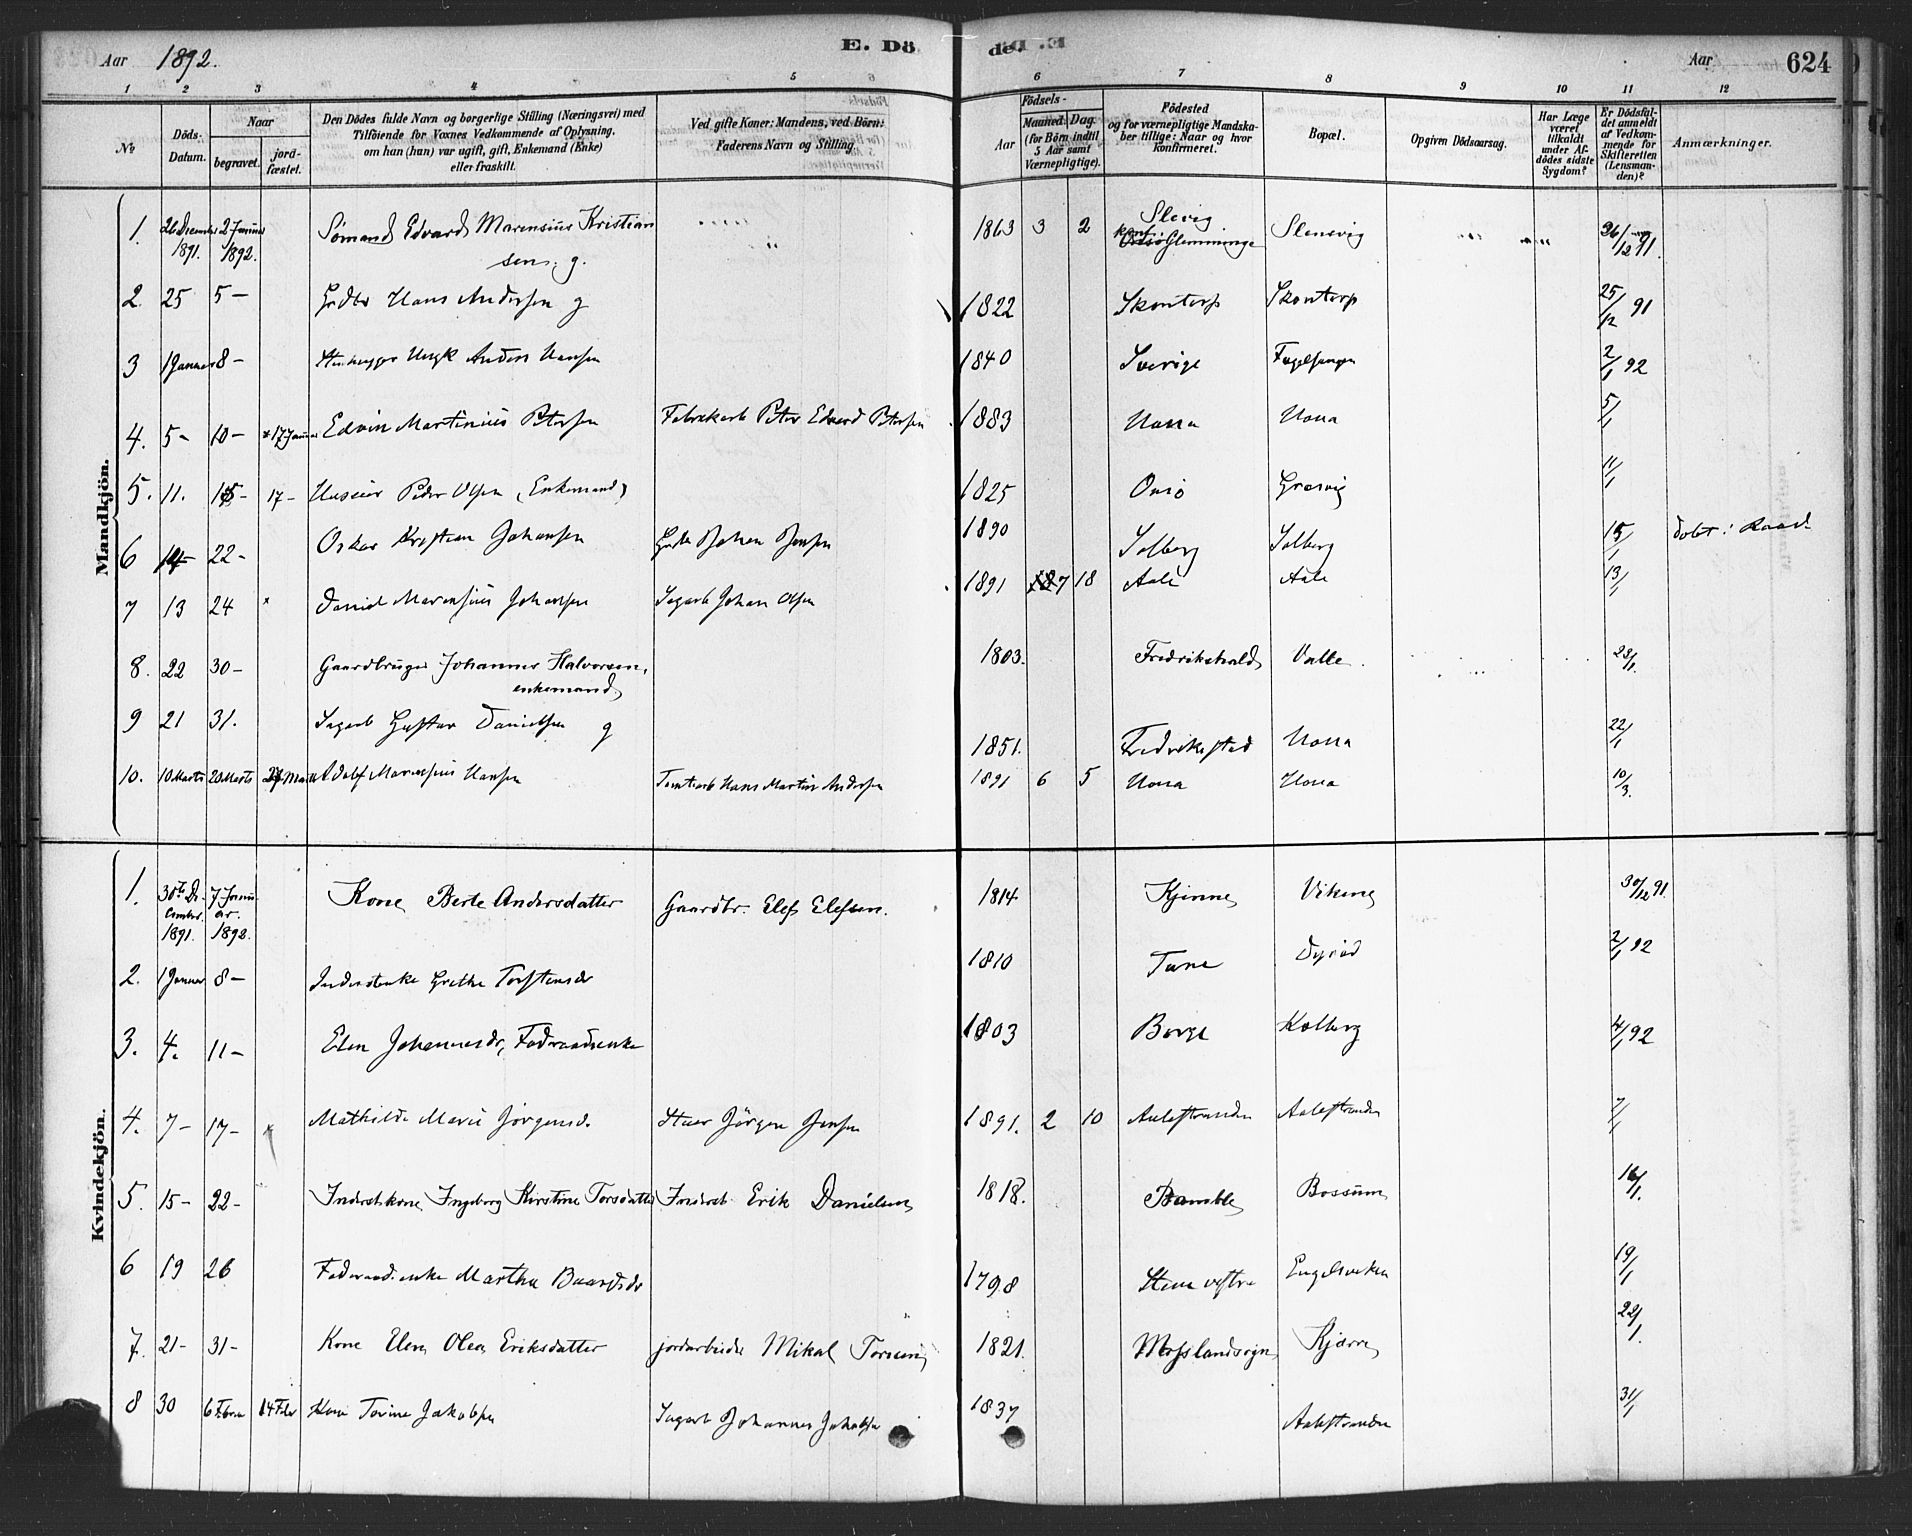 Aar 1892. E. Dö
de. Aar 624
1 2 3 4 5 6 7 8 9 10 11 12
№
Döds-Datum.
Naar
begravet.
jord-fæstet.
Den Dödes fulde Navn og borgerlige Stilling (Næringsvei) med
Tilföiende for Voxnes Vedkommende af Oplysning,
om han (hun) var ugift, gift, Enkemand (Enke)
eller fraskilt.
Ved gifte Koner: Mandens, ved Börn:
Faderens Navn og Stilling.
Födsels-
Aar
Maaned. Dag.
(for Börn indtil
5 Aar samt
Værnepligtige).
Födested
og for værnepligtige Mandska-
ber tillige: Naar og hvor
konfirmeret.
Bopæl.
Opgiven Dödsaarsag.
Har Læge
været
tilkaldt
under Af-
dödes sidste
Sygdom?
Er Dödsfal-
det anmeldt
af Vedkom-
mende for
Skifteretten
(Lensman-
den)?
Anmærkninger.
Mandkjön.
1. 26 Decembr 1891. 2 Januar 1892. Sömand Edvard Marensius Kristian
sen. g. 1863 3 2 Slevig
konf: Glemminge Slensvig 26/12 91.
2. 25 5 — Hans Andersen g 1822 Skontorp Skontorp 25/12 91
3 1 Januar 8 — Anders Hansen 1840 Sverige 2/1 92
4. 5 — 10 — * 17 Januar Edvin Martinius Petersen Fabrikarb Peter Edvard Petersen 1883 Houa Houa 5/1
5. 11. 15 — 17 — Huseier Peder Olsen (Enkemand) 1825 Onsö Gresvig 11/1
6 14 22 — Oskar Kristian Johansen Johan Jensen 1890 Solberg Solberg 15/1 dobt:
7 13 24 * Daniel Marensius Johansen Sagarb Johan Olsen 1891 7 18 Aale Aale 13/1
8. 22 30 — Gaardbruger Johannes Halvorsen,
enkemand 1803. Fredrikshald Valle. 23/1.
9 21 31. Sagarb Gustav Danielsen g 1851. Fredrikstad Houa 22/1
10. 10 Marts 20 Marts 27 Marts Adolf Marensius Hansen Tomtearb Hans Martin Andersen 1891 6 5 Houa Houa 10/3.
Kvindekjön.
1. 30te December. 1891. 7 Januar. 1892. Kone Berte Andersdatter Gaardbr. Elef Elefsen. 1814. Kjinne Vikene 30/12 91.
2. 1 Januar 8 — Inderstenke Grethe Torstensdr 1810 Tune Dyröd 2/1 92
3. 4. 11 — Elen Johannesdr, Föderaadsenke 1803 Borge Kolberg 4/1 92
4. 7 — 17 — * Mathilde Marie Jörgensd. Jörgen Jensen 1891. 2 10 Aalestranden Aalestranden 7/1
5. 15 — 22 — Inderstkone Ingeborg Kirstine Torsdatter Inderst. Erik Danielsen 1818. Bamble Bossum 16/1.
6 19 26 Föderaadsenke Martha Baardsdr 1798 vestre Engelsviken 19/1
7. 21 — 31 — Kone Elen Olea Eriksdatter jordarbeider Mikal 1821. Mosslandsogn Kjærre 22/1.
8 30 6 Febru 14 Febr Kone Torine Jakobsen Sagarb Johannes Jakobsen 1837 Aalestranden 31/1